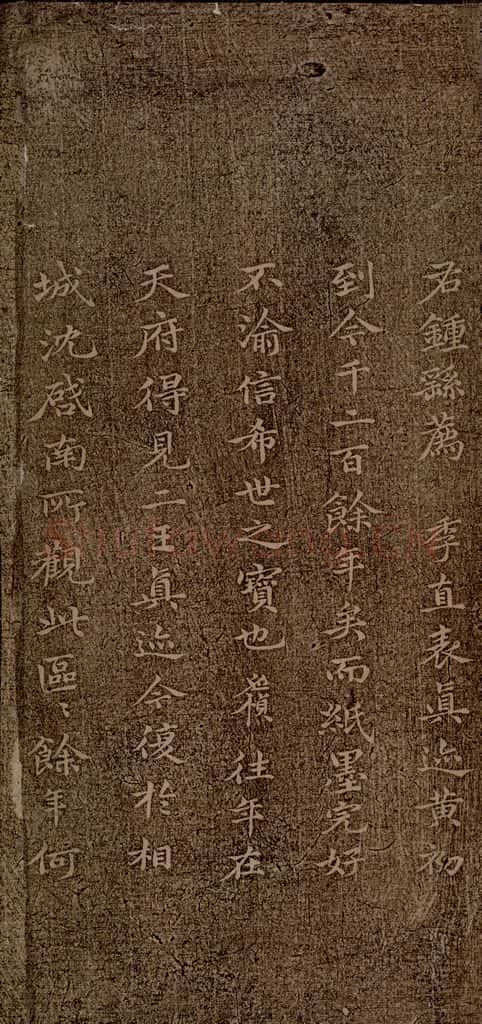 右鍾繇薦 季直表眞迹黄初
到今千二百餘年矣而紙墨完好
不渝信希世之寶也往年在
天府得見二王眞迹今復於相
城沈啓南所觀此區〻餘年何